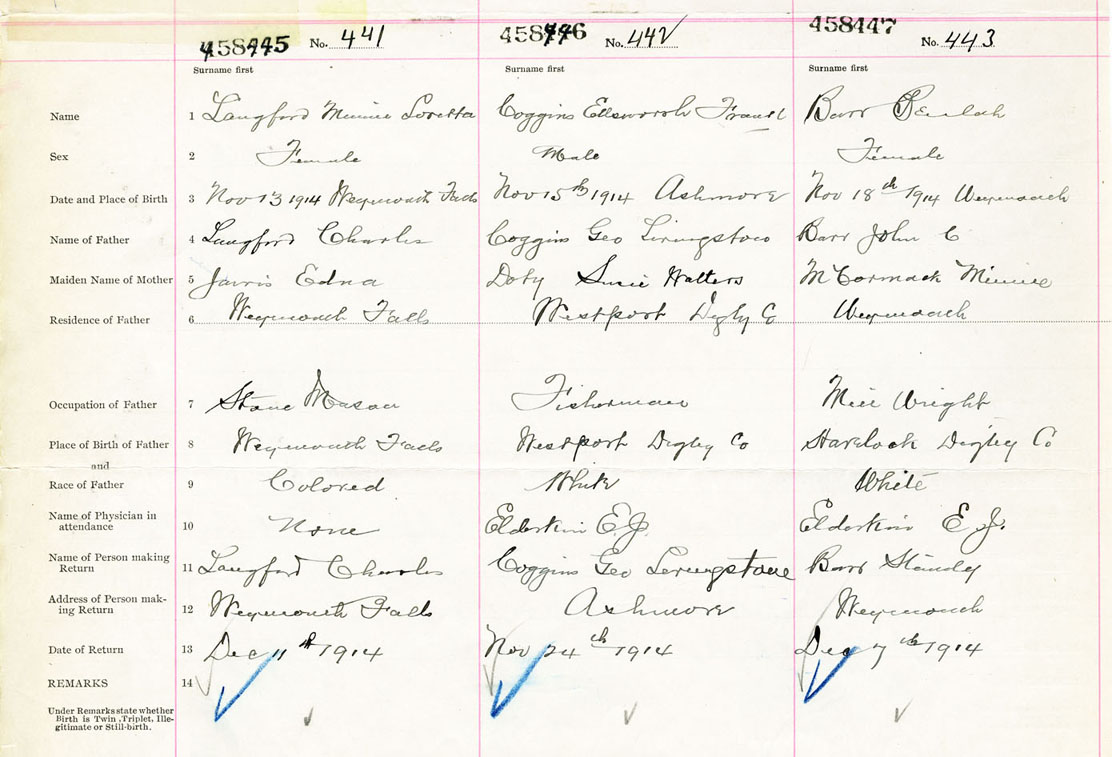 458445 No. 441 458446 No. 442 458447 No. 443
Surname first Surname first Surname first
Name 1 Langford Minnie Loretta Coggins Ellsworth Barr Beulah
Sex 2 Female Male Female
Date and Place of Birth 3 Nov 13 1914 Weymouth Falls Nov 15th 1914 Ashmore Nov 18th 1914 Weymouth
Name of Father 4 Langford Charles Coggins Geo Livingstone Barr John C
Maiden Name of Mother 5 Jarvis Edna Doty Susie Walters McCormack Minnie
Residence of Father 6 Weymouth Falls Westport Digby Co Weymouth
Occupation of Father 7 Stone Mason Fisherman Mill Wright
Place of Birth of Father 8 Weymouth Falls Westport Digby Co Havelock Digby Co
and
Race of Father 9 Colored White White
Name of Physician in
attendance 10 None Elderkin E.J. Elderkin E.J.
Name of Person making
Return 11 Langford Charles Coggins Geo Livingstone Barr
Address of Person mak-
ing Return 12 Weymouth Falls Ashmore Weymouth
Date of Return 13 Dec 11th 1914 Nov 24th 1914 Dec 7th 1914
REMARKS 14
Under Remarks state whether
Birth is Twin, Triplet, Ille-
gitimate or Still-birth.